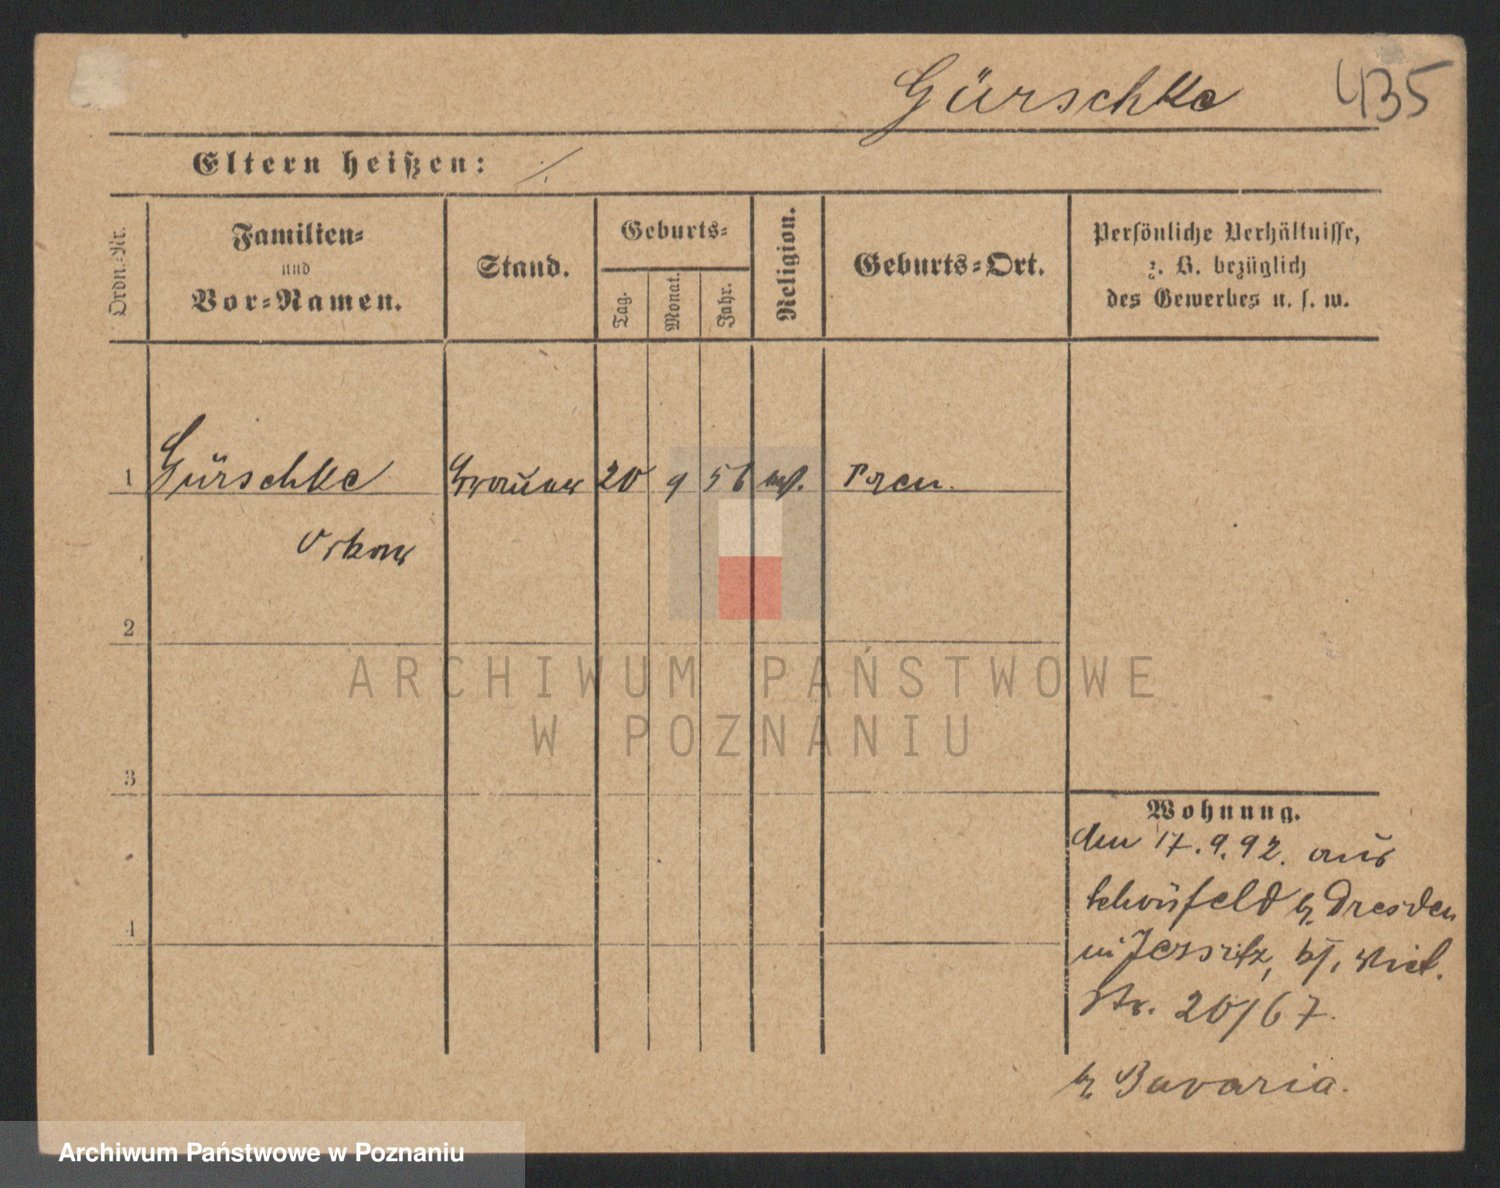 Gürschke 435
Eltern heißen: ·/.
Ordn.-Nr.
Familien-
und
Vor-Namen.
Stand.
Geburts-
Tag.
Monat.
Jahr.
Religion.
Geburts-Ort.
Persönliche Verhältnisse,
z. B. bezüglich
des Gewerbes u. s. w.
1 Gürschke Brauer 20 9 56 ev.
Oskar
2
3
4
Wohnung.
den 17.9.92. aus
Schönfeld b. Dresden
in Jersitz, Vict.
Str. 20/67.
b. Bavaria.
ARCHIWUM PAŃSTWOWE
W POZNANIU
Archiwum Państwowe w Poznaniu